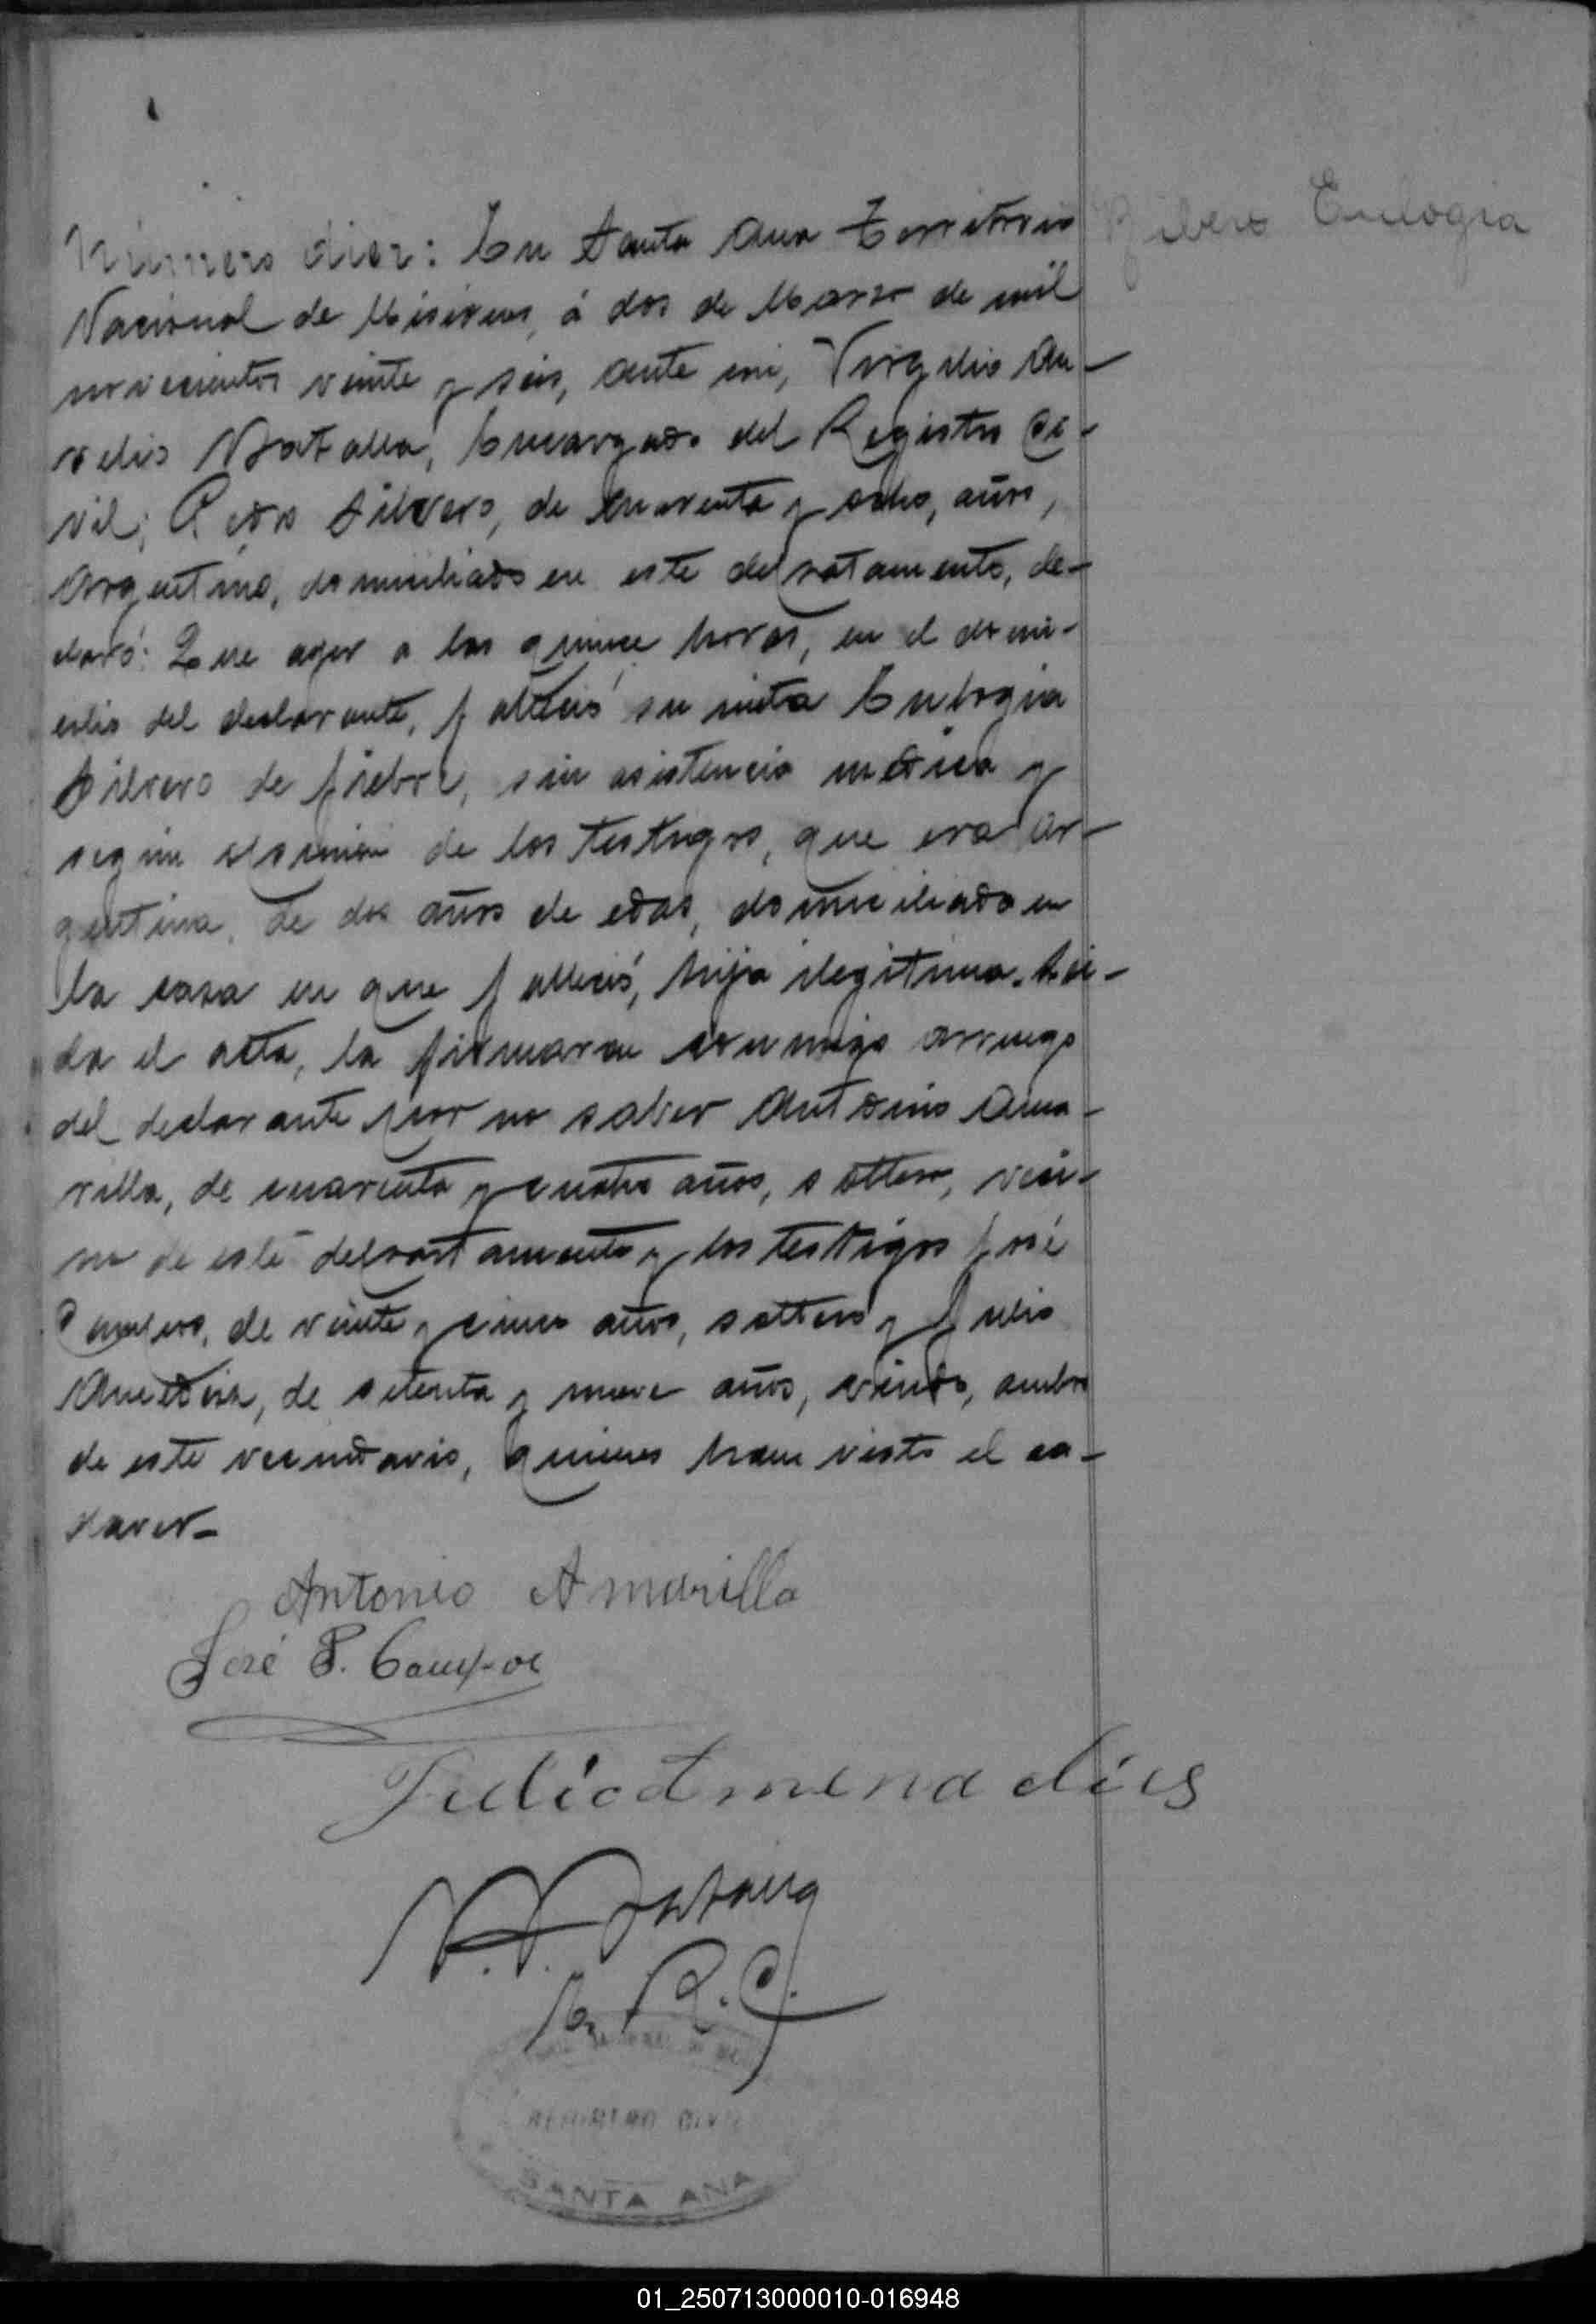 Número diez: En Santa Ana Territorio
Ribero Eulogia
Nacional de Misiones, á dos de Marzo de mil
novecientos veinte y seis, ante mi, Virgilio Au-
relio Batalla, Encargado del Registro Ci-
vil; Pedro Silvero, de cuarenta y ocho, años,
argentino, domiciliado en este departamento, de-
claró: Que ayer a las quince horas, en el domi-
cilio del declarante, falleció su nieta Eulogia
Silvero de fiebre, sin asistencia médica y
según opinión de los testigos, que era ar-
gentina, de dos años de edad, domiciliada en
la casa en que falleció, hija ilegitima. Leí-
da el acta, la firmaron conmigo arruego
del declarante por no saber Antonio Ama-
rilla, de cuarenta y cuatro años, soltero, veci-
no de este departamento y los testigos José
Campos, de veinte y cinco años, soltero y Julio
de setenta y nueve años, viudo, ambos
de este vecindario, quienes han visto el ca-
daver-
Antonio Amarilla
José P. Campos
Julio
E. R. C.
REGISTRO CIVIL
SANTA ANA
01_250713000010-016948